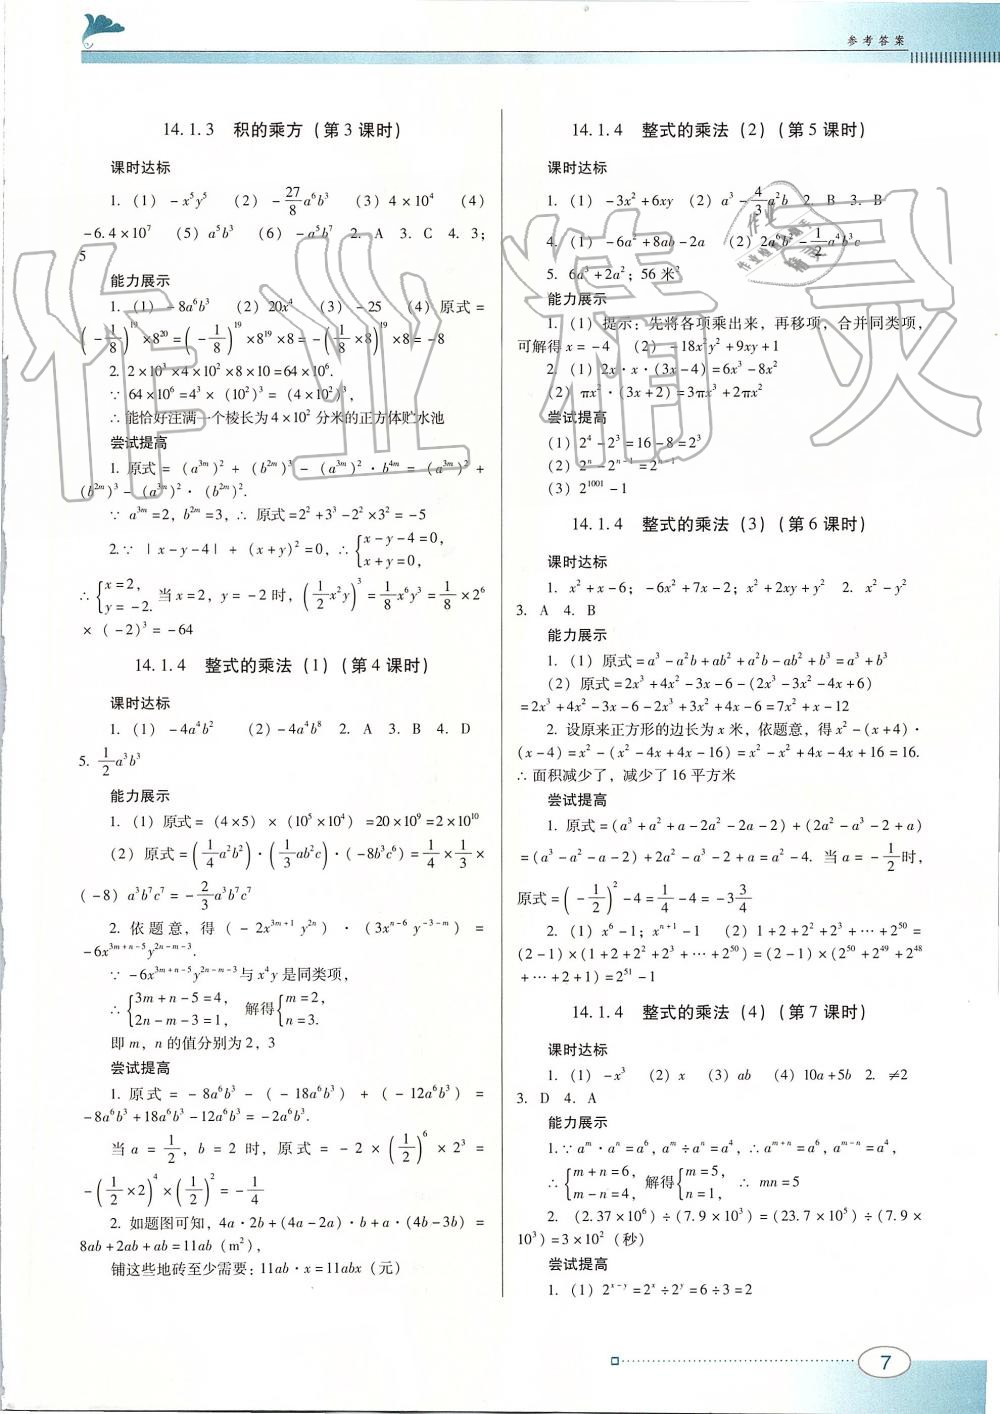 参考答案
14.1.3 积的乘方(第3课时)
课时达标
1.(1)-x⁵y⁵ (2)-27/8a⁶b³ (3)4×10⁴ (4)
-6.4×10⁷ (5)a⁵b³ (6)-a⁵b⁷ 2. A 3. C 4. 3;
5
能力展示
1.(1)-8a⁶b³ (2)20x⁴ (3)-25 (4)原式=
(-1/8)¹⁹×8²⁰=(-1/8)¹⁹×8¹⁹×8=-(1/8×8)¹⁹×8=-8
2. 2×10³×4×10²×8×10=64×10⁶.
∵ 64×10⁶=4³×(10²)³=(4×10²)³,
∴能恰好注满一个棱长为4×10²分米的正方体贮水池
尝试提高
1. 原式=(a³ᵐ)²+(b²ᵐ)³-(a³ᵐ)²·b⁴ᵐ=(a³ᵐ)²+
(b²ᵐ)³-(a³ᵐ)²·(b²ᵐ)².
∵ a³ᵐ=2, b²ᵐ=3, ∴ 原式=2²+3³-2²×3²=-5
2.∵ |x-y-4|+(x+y)²=0, ∴{x-y-4=0,
x+y=0,
∴{x=2, y=-2. 当x=2, y=-2时, (1/2x²y)³=1/8x⁶y³=1/8×2⁶
×(-2)³=-64
14.1.4 整式的乘法(1)(第4课时)
课时达标
1.(1)-4a⁴b² (2)-4a⁴b⁸ 2. A 3. B 4. D
5. 1/2a³b³
能力展示
1.(1)原式=(4×5)×(10⁵×10⁴)=20×10⁹=2×10¹⁰
(2)原式=(1/4a²b²)·(1/3ab²c)·(-8b³c⁶)=1/4×1/3×
(-8)a³b⁷c⁷=-2/3a³b⁷c⁷
2. 依题意,得(-2x³ᵐ⁺¹y²ⁿ)·(3xⁿ⁻⁶y⁻³⁻ᵐ)=
-6x³ᵐ⁺ⁿ⁻⁵y²ⁿ⁻ᵐ⁻³.
∵ -6x³ᵐ⁺ⁿ⁻⁵y²ⁿ⁻ᵐ⁻³与x⁴y是同类项,
∴{3m+n-5=4, 2n-m-3=1, 解得{m=2, n=3.
即m,n的值分别为2,3
尝试提高
1. 原式=-8a⁶b³-(-18a⁶b³)+(-12a⁶b³)=
-8a⁶b³+18a⁶b³-12a⁶b³=-2a⁶b³.
当a=1/2, b=2时,原式=-2×(1/2)⁶×2³=
-(1/2×2)⁴×(1/2)²=-1/4
2. 如题图可知,4a·2b+(4a-2a)·b+a·(4b-3b)=
8ab+2ab+ab=11ab(m²),
铺这些地砖至少需要:11ab·x=11abx(元)
14.1.4 整式的乘法(2)(第5课时)
课时达标
1.(1)-3x²+6xy (2)a³-4/3a²b 2. B 3. B
4.(1)-6a²+8ab-2a (2)2a⁶b²-1/2a⁴b³c
5. 6a³+2a²;56米²
能力展示
1.(1)提示:先将各项乘出来,再移项,合并同类项,
可解得x=-4 (2)-18x²y²+9xy+1
2.(1)2x·x·(3x-4)=6x³-8x²
(2)πx²·(3x+2)=3πx³+2πx²
尝试提高
(1)2⁴-2³=16-8=2³
(2)2ⁿ-2ⁿ⁻¹=2ⁿ⁻¹
(3)2¹⁰⁰¹-1
14.1.4 整式的乘法(3)(第6课时)
课时达标
1. x²+x-6;-6x²+7x-2;x²+2xy+y² 2. x²-y²
3. A 4. B
能力展示
1.(1)原式=a³-a²b+ab²+a²b-ab²+b³=a³+b³
(2)原式=2x³+4x²-3x-6-(2x³-3x²-4x+6)
=2x³+4x²-3x-6-2x³+3x²+4x-6=7x²+x-12
2. 设原来正方形的边长为x米,依题意,得x²-(x+4)·
(x-4)=x²-(x²-4x+4x-16)=x²-x²+4x-4x+16=16.
∴面积减少了,减少了16平方米
尝试提高
1. 原式=(a³+a²+a-2a²-2a-2)+(2a²-a³-2+a)
=(a³-a²-a-2)+2a²-a³-2+a=a²-4. 当a=-1/2时,
原式=(-1/2)²-4=1/4-4=-3 3/4
2.(1)x⁶-1;xⁿ⁺¹-1 (2)1+2+2²+2³+…+2⁵⁰=
(2-1)×(1+2+2²+2³+…+2⁵⁰)=(2-1)×(2⁵⁰+2⁴⁹+2⁴⁸
+…+2+1)=2⁵¹-1
14.1.4 整式的乘法(4)(第7课时)
课时达标
1.(1)-x³ (2)x (3)ab (4)10a+5b 2. ≠2
3. D 4. A
能力展示
1.∵aᵐ·aⁿ=a⁶, aᵐ÷aⁿ=a⁴, ∴aᵐ⁺ⁿ=a⁶, aᵐ⁻ⁿ=a⁴,
∴{m+n=6, m-n=4, 解得{m=5, n=1, ∴ mn=5
2.(2.37×10⁶)÷(7.9×10³)=(23.7×10⁵)÷(7.9×
10³)=3×10²(秒)
尝试提高
1.(1)2ˣ⁻ʸ=2ˣ÷2ʸ=6÷3=2
7
作业精灵